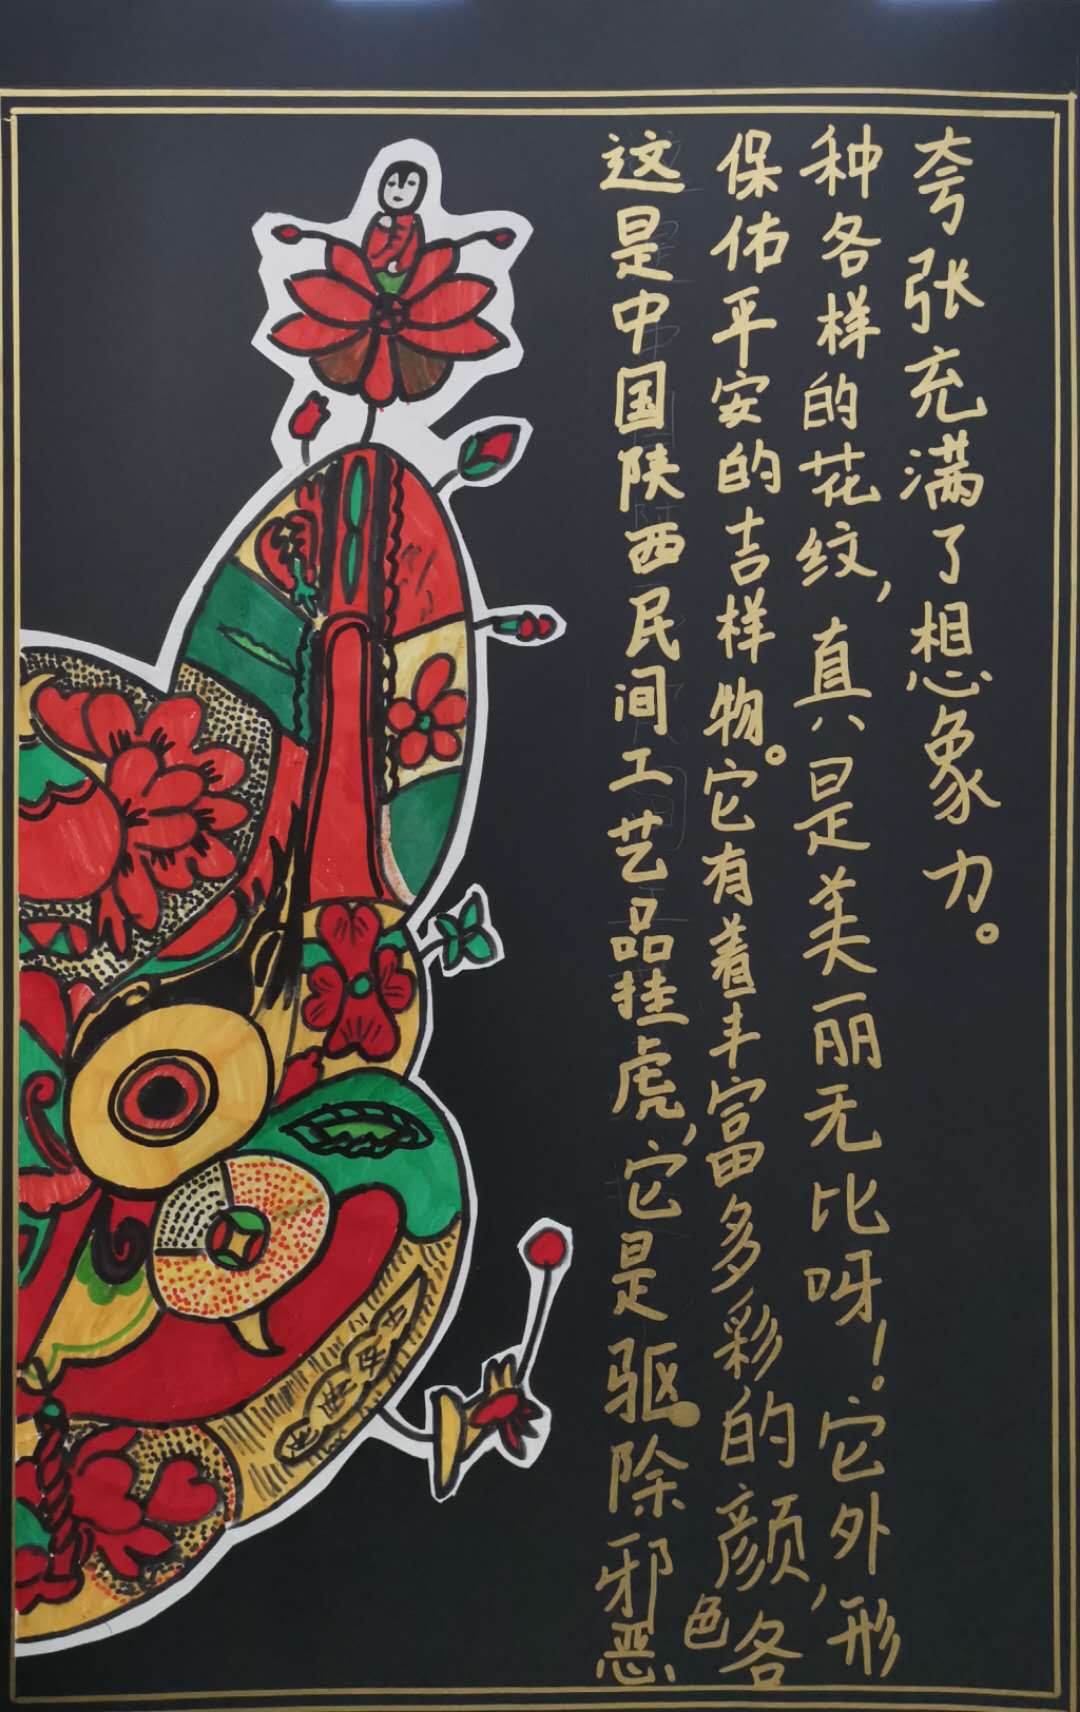 这是中国陕西民间工艺品挂虎,它是驱除邪恶
保佑平安的吉样物。它有着丰富多彩的颜色,各
种各样的花纹,真是美丽无比呀!它外形
夸张充满了想象力。